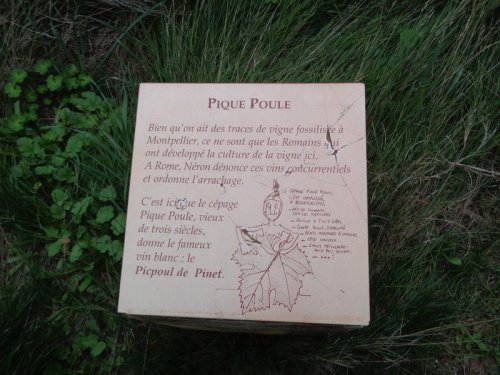 PIQUE POULE
Bien qu'on ait des traces de vigne fossilisée à
Montpellier, ce ne sont que les Romains qui
ont développé la culture de la vigne ici.
A Rome, Néron dénonce ces vins concurrentiels
et ordonne l'arrachage.
C'est ici que le cépage
Pique Poule, vieux
de trois siècles,
donne le fameux
vin blanc : le
Picpoul de Pinet.
LE CÉPAGE PIQUE POULE,
C'EST